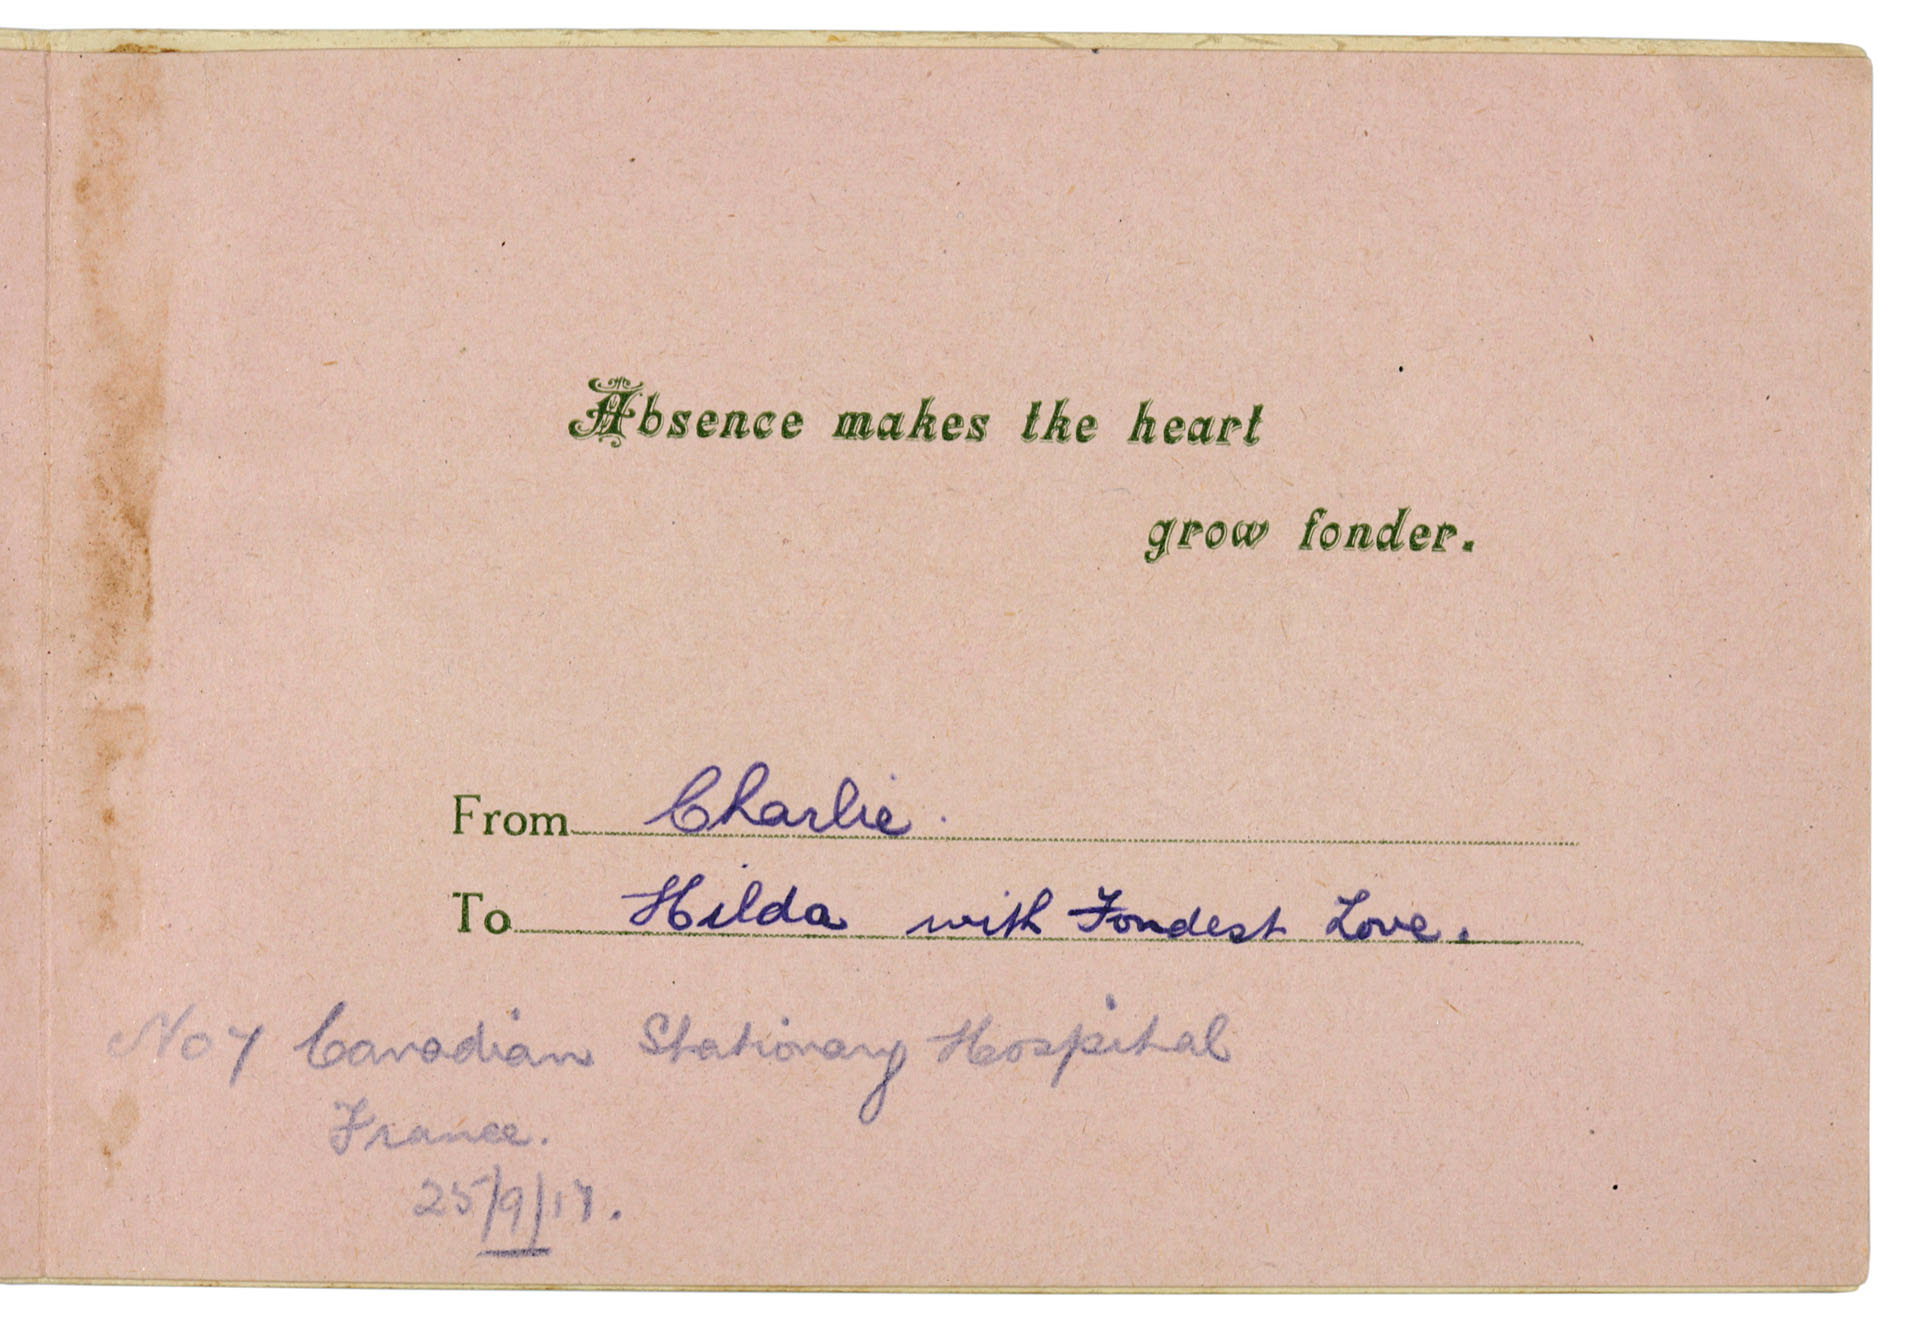 Absence makes the heart
grow fonder.
From Charlie.
To Hilda with Fondest Love.
No 7 Canadian Stationary Hospital
France.
25/9/17.